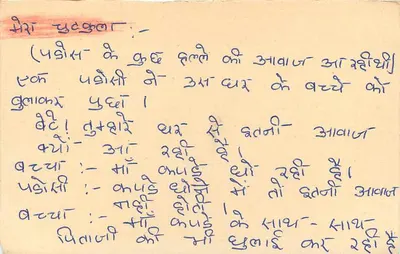 मेरा चुटकुला :-
(पडोस के कुछ हल्ले की आवाज आ रही थी)
एक पडोसी ने उस घर के बच्चे को
बुलाकर पुछा ।
बेटे! तुम्हारे घर से इतनी आवाज
क्यों आ रही है।
बच्चा :- माँ कपडे धो रही है।
पडोसी :- कपडे धोने में तो इतनी आवाज
नही होती ।
बच्चा :- माँ कपडे के साथ - साथ
पिताजी की भी धुलाई कर रही है